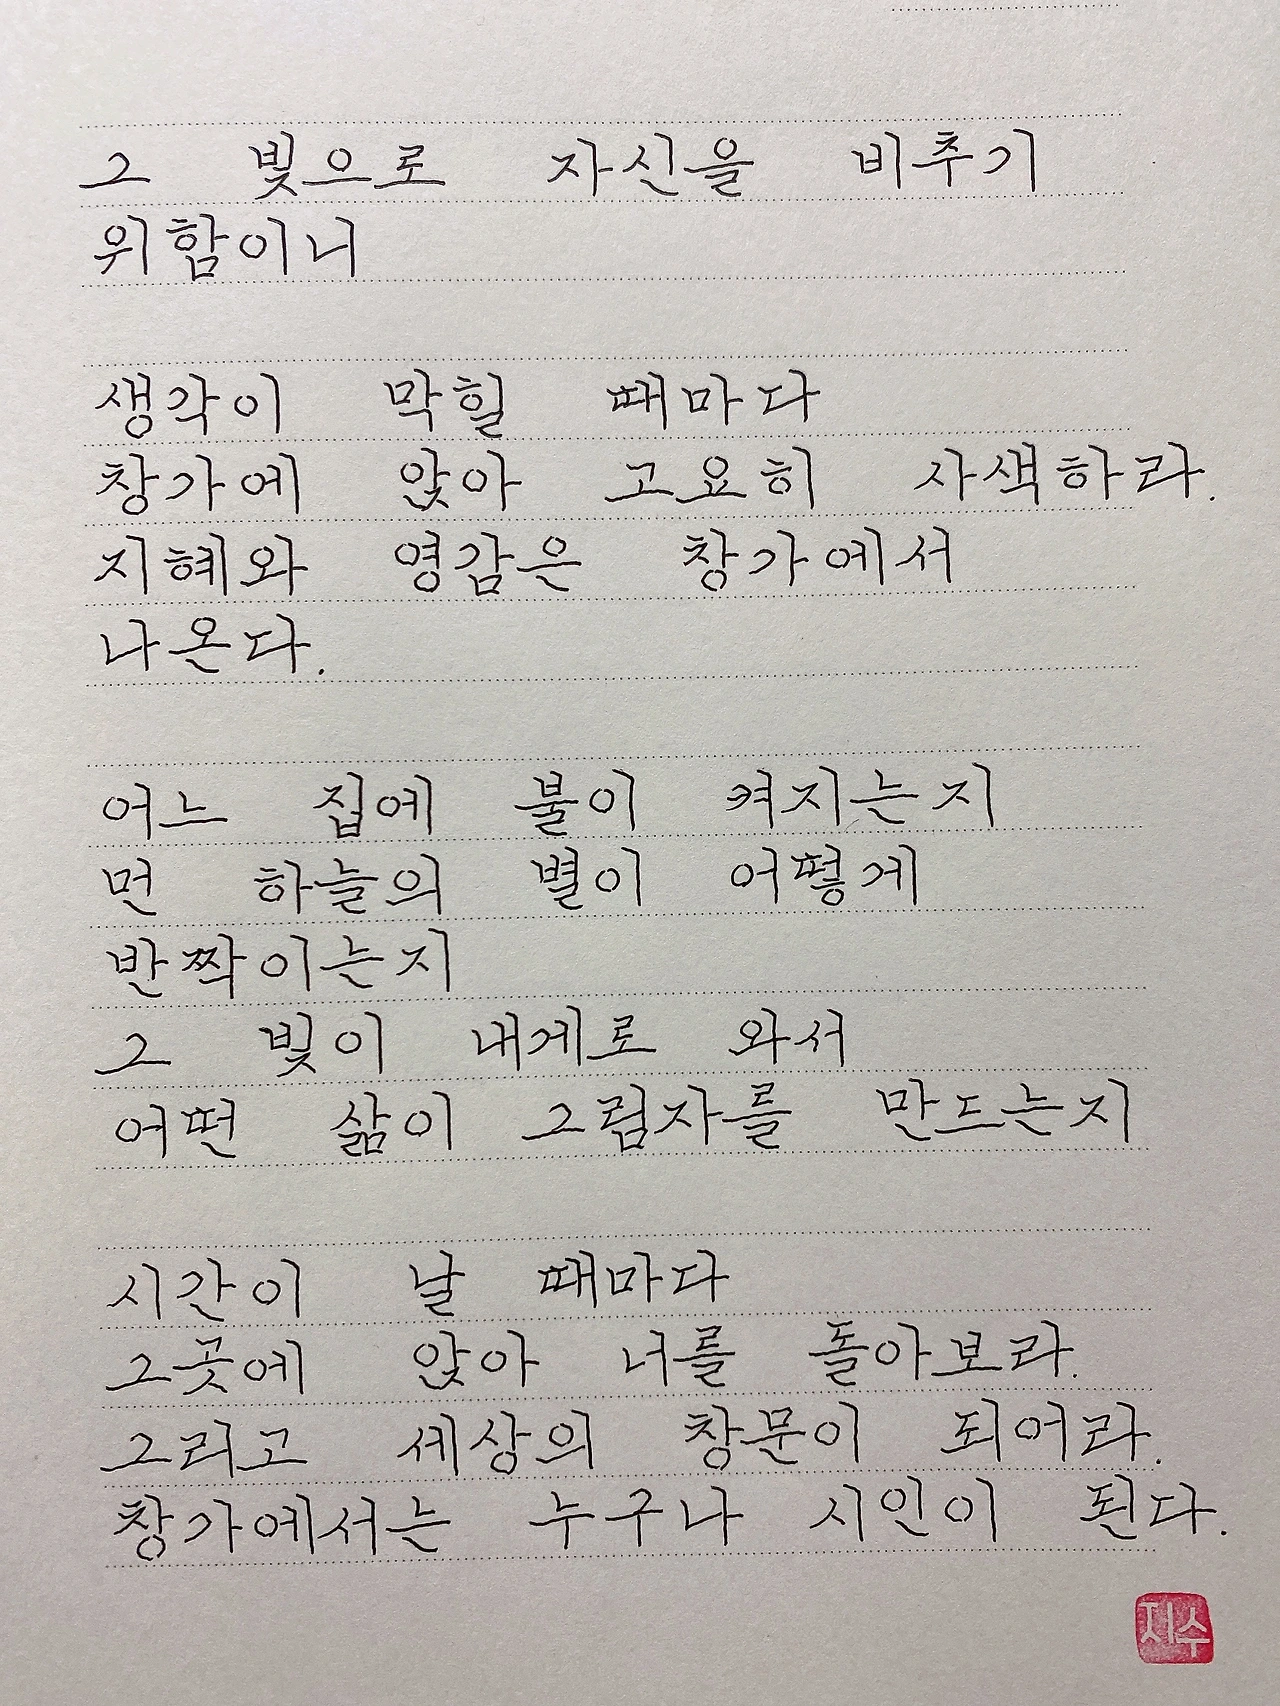 그 빛으로 자신을 비추기
위함이니
생각이 막힐 때마다
창가에 앉아 고요히 사색하라.
지혜와 영감은 창가에서
나온다.
어느 집에 불이 켜지는지
먼 하늘의 별이 어떻게
반짝이는지
그 빛이 내게로 와서
어떤 삶이 그림자를 만드는지
시간이 날 때마다
그곳에 앉아 너를 돌아보라.
그리고 세상의 창문이 되어라.
창가에서는 누구나 시인이 된다.
지수